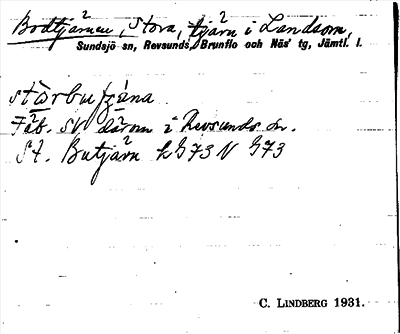 Bodtjärnen, Stora, tjärn i Landsom,
Sundsjö sn, Revsunds, Brunflo och Näs' tg, Jämtl. l.
Fäb. SV därom i Revsunds sn.
St. Butjärn k G73 V G73
C. LINDBERG 1931.